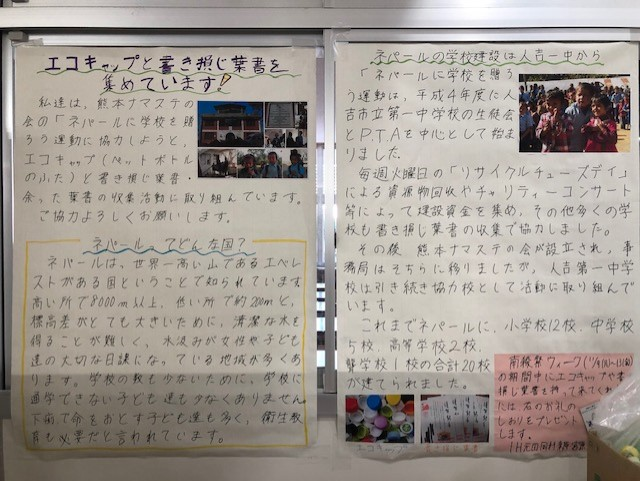 エコキャップと書き損じ葉書を
集めています!
私達は、熊本ナマステの
会の「ネパールに学校を贈
ろう運動に協力しようと、
エコキャップ(ペットボトル
のふた)と書き損じ葉書・
余った葉書の収集活動に取り組んでいます。
ご協力よろしくお願いします。
ネパールってどんな国?
ネパールは、世界一高い山であるエベレ
ストがある国ということで知られています。
高い所で8000m以上、低い所で約200mと、
標高差がとても大きいために、清潔な水を
得ることが難しく、水汲みが女性や子ども
達の大切な日課になっている地域が多くあ
ります。学校の数も少ないために、学校に
通学できない子ども達も少なくありません。
下痢で命をおとす子ども達も多く、衛生教
育も必要だと言われています。
ネパールの学校建設は人吉一中から
「ネパールに学校を贈ろ
う運動は、平成4年度に人
吉市立第一中学校の生徒会
とP.T.Aを中心として始ま
りました。
毎週火曜日の「リサイクルチューズデイ」
による資源物回収やチャリティーコンサート
等によって建設資金を集め、その他多くの学
校も書き損じ葉書の収集で協力しました。
その後、熊本ナマステの会が設立され、事
務局はそちらに移りましたが、人吉第一中学
校は引き続き協力校として活動に取り組んで
います。
これまでネパールに、小学校12校、中学校
5校、高等学校2校、
聾学校1校の合計20校
が建てられました。
南稜祭ウィーク
の期間中にエコキャップや書き
損じ葉書を持って来てくれた
には右のお礼の
しおりをプレゼント
します。
エコキャップ